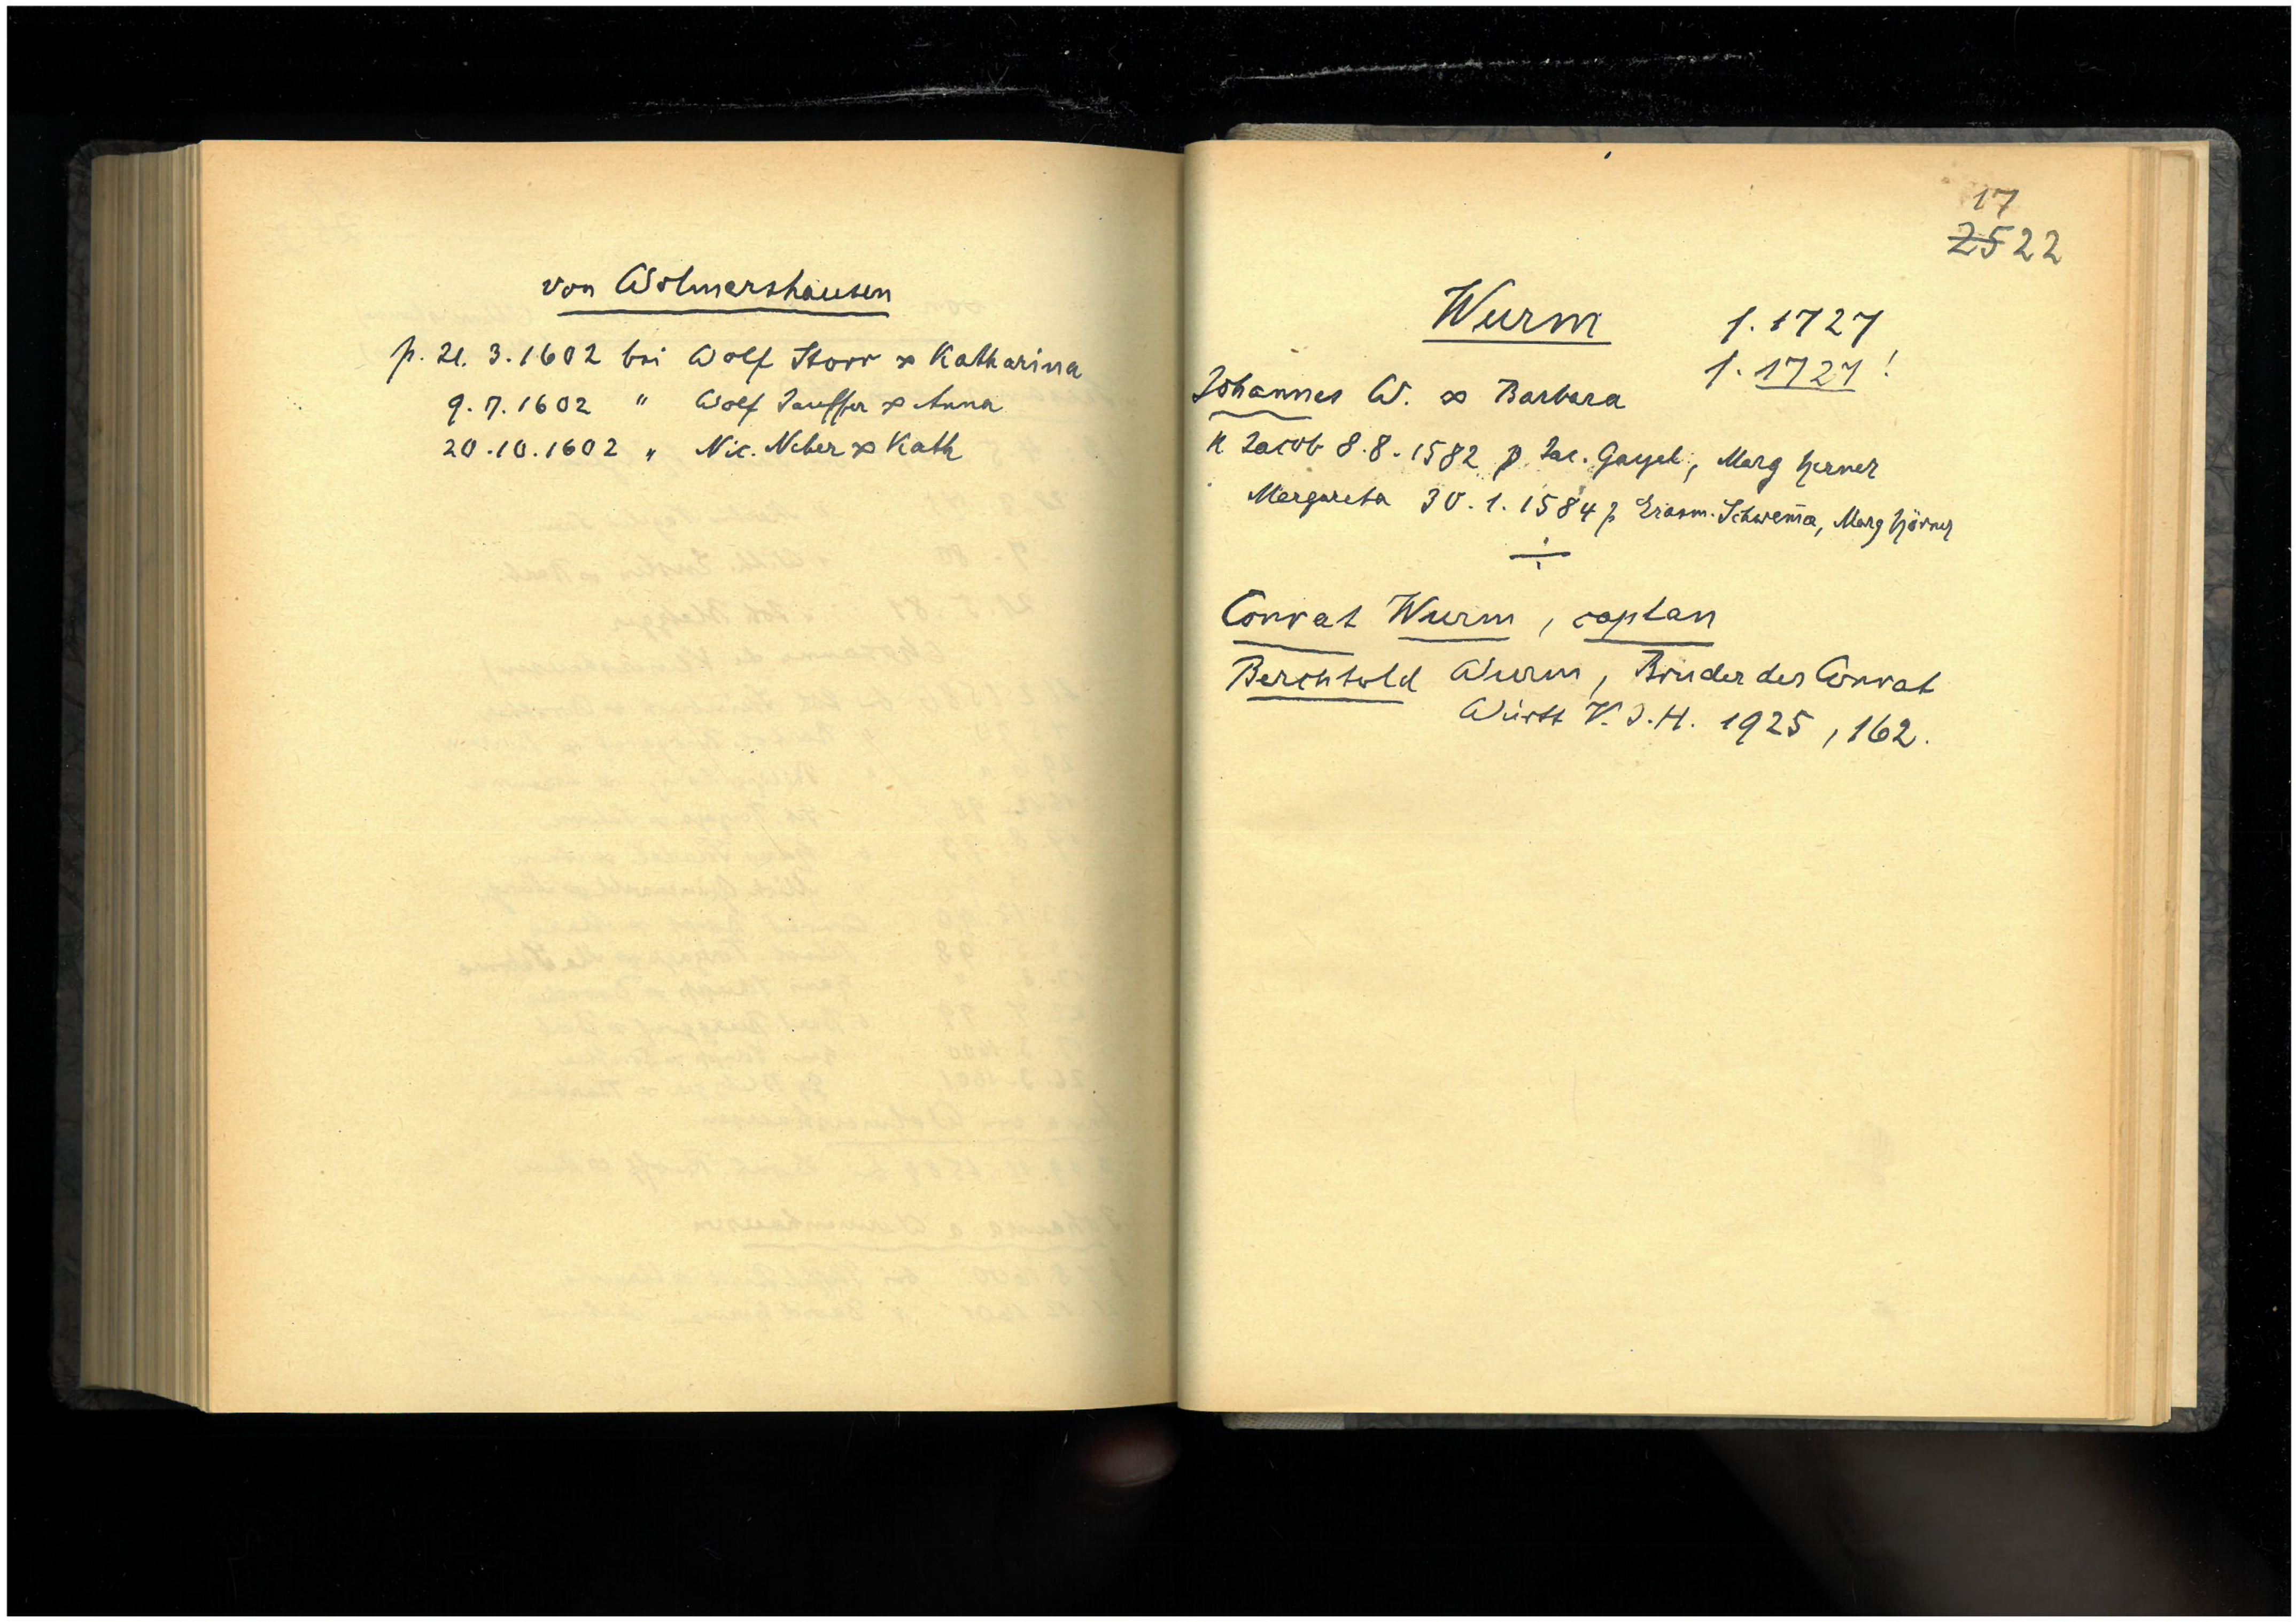 von Wolmershausen
p. 21. 3. 1602 bei Wolf Storr ∞ Katharina
9. 7. 1602 " Wolf Sauffer ∞ Anna
20. 10. 1602 " Nic. Neber ∞ Kath
17
2522
Wurm f. 1727
f. 1727!
Johannes W. ∞ Barbara
K Jacob 8. 8. 1582 p. Jac. Gayel, Marg Herner
Margareta 30. 1. 1584 p Erasm. Schwem̄a, Marg Hörner
Conrat Wurm, caplan
Berchtold Wurm, Bruder des Conrat
Württ V. J. H. 1925, 162.